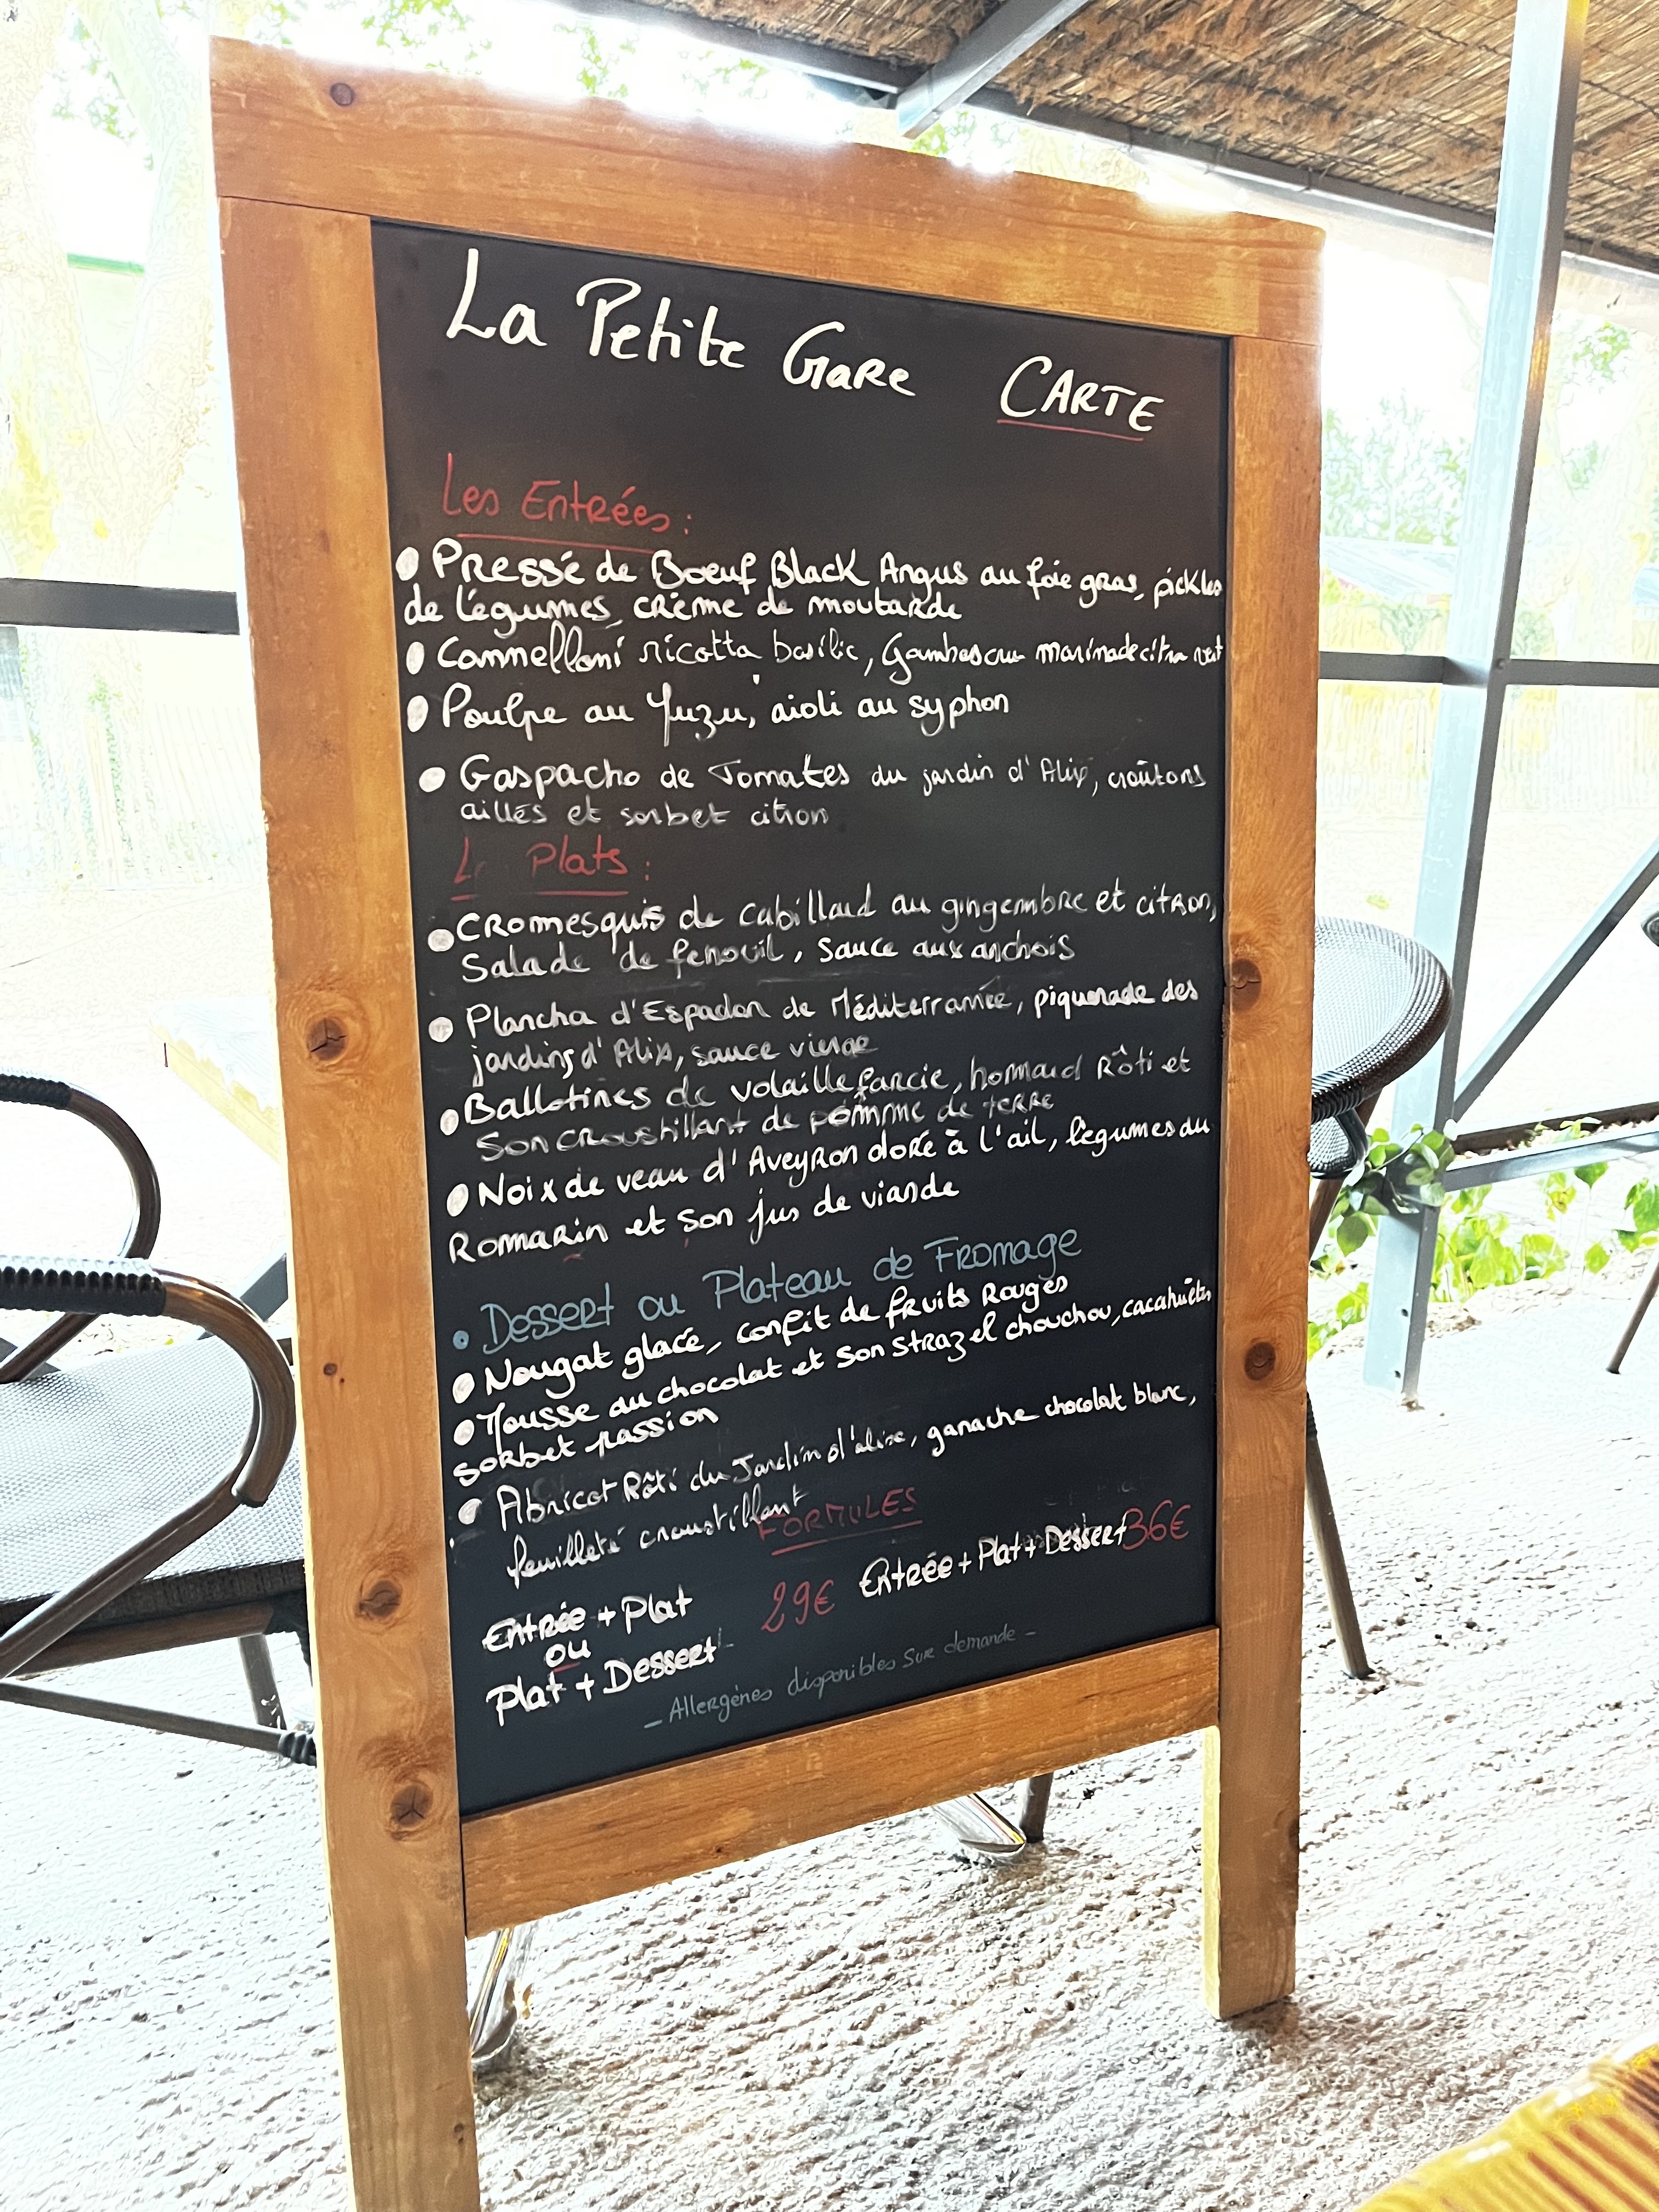 La Petite Gare CARTE
Les Entrées :
Pressé de Boeuf Black Angus au foie gras, pickles
de légumes, crème de moutarde
Cannelloni ricotta basilic, Gambas au marinade citron vert
Poulpe au Yuzu, aioli au syphon
Gaspacho de Tomates du jardin d'Alix, croûtons
aillés et sorbet citron
Plats :
Cromesquis de Cabillaud au gingembre et citron,
Salade de fenouil, Sauce aux anchois
Plancha d'Espadon de Méditerranée, des
jardins d'Alix, sauce vierge
Ballotines de volaille farcie, homard Rôti et
Son croustillant de pomme de terre
Noix de veau d'Aveyron doré à l'ail, légumes du
Romarin et son jus de viande
• Dessert ou Plateau de Fromage
Nougat glacé, confit de fruits Rouges
Mousse au chocolat et son strazel chouchou, cacahuètes
sorbet passion
Abricot Rôti du Jardin d'alix, ganache chocolat blanc,
feuilleté croustillant
FORMULES
Entrée + Plat
ou
Plat + Dessert
29€
Entrée + Plat + Dessert 36€
- Allergènes disponibles sur demande -